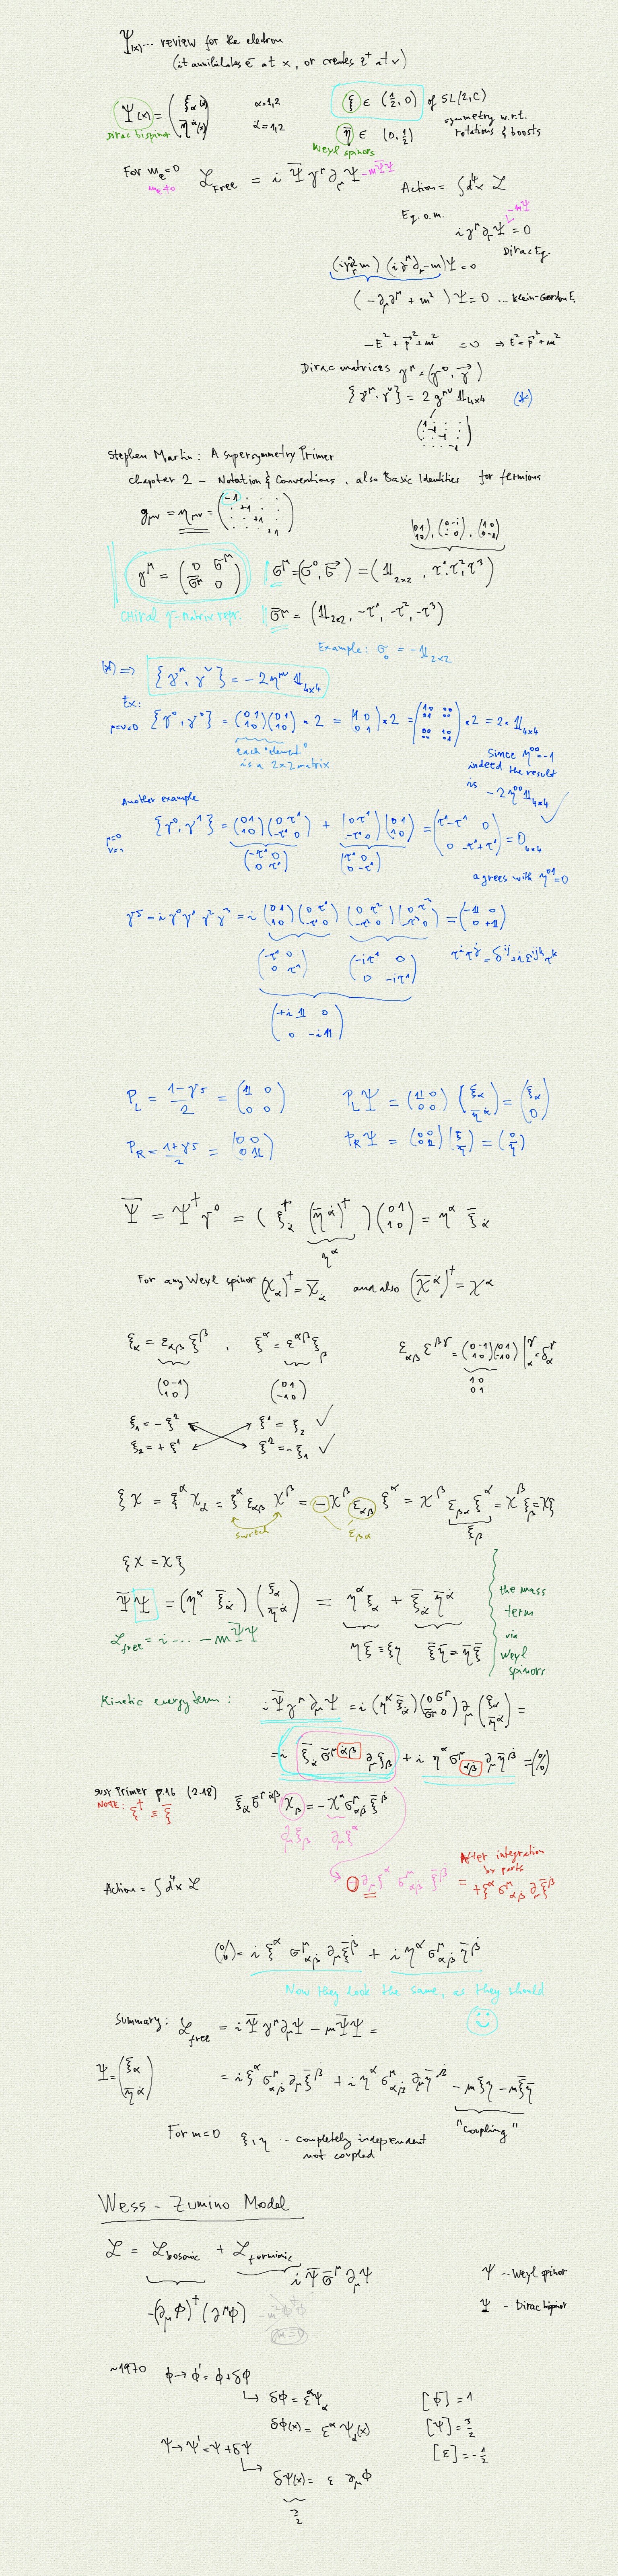 Ψ(x)... review for the electron
(it annihilates e⁻ at x, or creates e⁺ at x)
Ψ(x) = (ξα(x) / η̄^α̇(x))   α=1,2   α̇=1,2
Dirac bispinor
ξ ∈ (½, 0) of SL(2,C)
η̄ ∈ (0, ½)
Weyl spinors
symmetry w.r.t. rotations & boosts
For mₑ=0   L_Free = i Ψ̄ γ^μ ∂_μ Ψ - mΨ̄Ψ
mₑ≠0
Action = ∫d⁴x L
Eq. o. m.
-mΨ
i γ^μ ∂_μ Ψ = 0
Dirac Eq.
(iγ^μ∂_μ m) (iγ^μ∂_μ - m)Ψ = 0
(-∂_μ∂^μ + m²) Ψ = 0 ... Klein-Gordon E.
-E² + p⃗² + m² = 0 ⇒ E² = p⃗² + m²
Dirac matrices γ^μ = (γ⁰, γ⃗)
{γ^μ, γ^ν} = 2 g^μν 𝟙₄ₓ₄   (*)
Stephen Martin: A supersymmetry Primer
chapter 2 - Notation & Conventions, also Basic Identities for fermions
g_μν = η_μν = (-1 +1 +1 +1)
(0 1 / 1 0), (0 -i / i 0), (1 0 / 0 -1)
γ^μ = (0 σ^μ / σ̄^μ 0)   σ^μ = (σ⁰, σ⃗) = (𝟙₂ₓ₂, τ¹, τ², τ³)
Chiral γ-Matrix repr.   σ̄^μ = (𝟙₂ₓ₂, -τ¹, -τ², -τ³)
Example: σ₀ = -𝟙₂ₓ₂
(*) ⇒ {γ^μ, γ^ν} = -2η^μν 𝟙₄ₓ₄
Ex:
μ=ν=0 {γ⁰, γ⁰} = (0 1 / 1 0)(0 1 / 1 0) * 2 = (1 0 / 0 1) * 2 = (1 0 0 0 / 0 1 0 0 / 0 0 1 0 / 0 0 0 1) * 2 = 2 * 𝟙₄ₓ₄
each "element" is a 2x2 matrix
Since η⁰⁰=-1
indeed the result
is -2η⁰⁰𝟙₄ₓ₄ ✓
Another example
μ=0 ν=1 {γ⁰, γ¹} = (0 1 / 1 0)(0 τ¹ / -τ¹ 0) + (0 τ¹ / -τ¹ 0)(0 1 / 1 0) = (τ¹-τ¹ 0 / 0 -τ¹+τ¹) = 0₄ₓ₄
(-τ¹ 0 / 0 τ¹)   (τ¹ 0 / 0 -τ¹)
agrees with η⁰¹=0
γ⁵ = i γ⁰γ¹γ²γ³ = i (0 1 / 1 0)(0 τ¹ / -τ¹ 0)(0 τ² / -τ² 0)(0 τ³ / -τ³ 0) = (-𝟙 0 / 0 +𝟙)
(-τ¹ 0 / 0 τ¹)   (-iτ¹ 0 / 0 -iτ¹)   τ^i τ^j = δ^ij + i ε^ijk τ^k
(+i𝟙 0 / 0 -i𝟙)
P_L = (1-γ5)/2 = (𝟙 0 / 0 0)   P_L Ψ = (𝟙 0 / 0 0)(ξα / η̄^α̇) = (ξα / 0)
P_R = (1+γ5)/2 = (0 0 / 0 𝟙)   P_R Ψ = (0 0 / 0 𝟙)(ξ / η̄) = (0 / η̄)
Ψ̄ = Ψ†γ⁰ = (ξ†α̇ (η̄^α̇)†)(0 1 / 1 0) = η^α ξ̄_α̇
η^α
For any Weyl spinor (χ_α)† = χ̄_α̇ and also (χ̄^α̇)† = χ^α
ξ_α = ε_αβ ξ^β,   ξ^α = ε^αβ ξ_β   ε_αβ ε^βγ = (0 -1 / 1 0)(0 1 / -1 0)|_α^γ = δ_α^γ
(0 -1 / 1 0)   (0 1 / -1 0)   1 0 / 0 1
ξ₁ = -ξ²   ξ¹ = ξ₂ ✓
ξ₂ = +ξ¹   ξ² = -ξ₁ ✓
ξχ = ξ^α χ_α = ξ^α ε_αβ χ^β = - χ^β ε_αβ ξ^α = χ^β ε_βα ξ^α = χ^β ξ_β = χξ
switch   ε_βα   ξ_β
ξχ = χξ
Ψ̄Ψ = (η^α ξ̄_α̇)(ξ_α / η̄^α̇) = η^α ξ_α + ξ̄_α̇ η̄^α̇
L_free = i ... - mΨ̄Ψ   ηξ = ξη   ξ̄η̄ = η̄ξ̄
the mass
term
via
Weyl
spinors
Kinetic energy term: iΨ̄γ^μ∂_μΨ = i (η^α ξ̄_α̇)(0 σ^μ / σ̄^μ 0) ∂_μ (ξ_α / η̄^α̇) =
= i ξ̄_α̇ σ̄^μ α̇β ∂_μ ξ_β + i η^α σ^μ_αβ̇ ∂_μ η̄^β̇ = (%)
SUSY Primer p.16 (2.18)   ξ̄_α̇ σ̄^μ α̇β χ_β = -χ^α σ^μ_αβ̇ ξ̄^β̇
NOTE: ξ† ≡ ξ̄
∂_μ ξ_β   ∂_μ ξ^α
-∂_μ ξ^α σ^μ_αβ̇ ξ̄^β̇ = After integration by parts + ξ^α σ^μ_αβ̇ ∂_μ ξ̄^β̇
Action = ∫d⁴x L
(%) = i ξ^α σ^μ_αβ̇ ∂_μ ξ̄^β̇ + i η^α σ^μ_αβ̇ η̄^β̇
Now they look the same, as they should
Summary: L_free = iΨ̄γ^μ∂_μΨ - mΨ̄Ψ =
Ψ = (ξ_α / η̄^α̇)   = i ξ^α σ^μ_αβ̇ ∂_μ ξ̄^β̇ + i η^α σ^μ_αβ̇ ∂_μ η̄^β̇ - mξη - mξ̄η̄
"Coupling"
For m=0 ξ, η -- completely independent
not coupled
Wess - Zumino Model
L = L_bosonic + L_fermionic
i Ψ̄ σ̄^μ ∂_μ Ψ   ψ -- Weyl spinor
-(∂_μ Φ)† (∂^μ Φ)   Ψ -- Dirac bispinor
~1970 ϕ→ϕ' = ϕ+δϕ
↳ δϕ = ε^α ψ_α   [ϕ] = 1
δϕ(x) = ε^α ψ_α(x)   [ψ] = 3/2
ψ→ψ' = ψ+δψ   [ε] = -1/2
↳ δψ(x) = ε ∂_μ ϕ
3/2